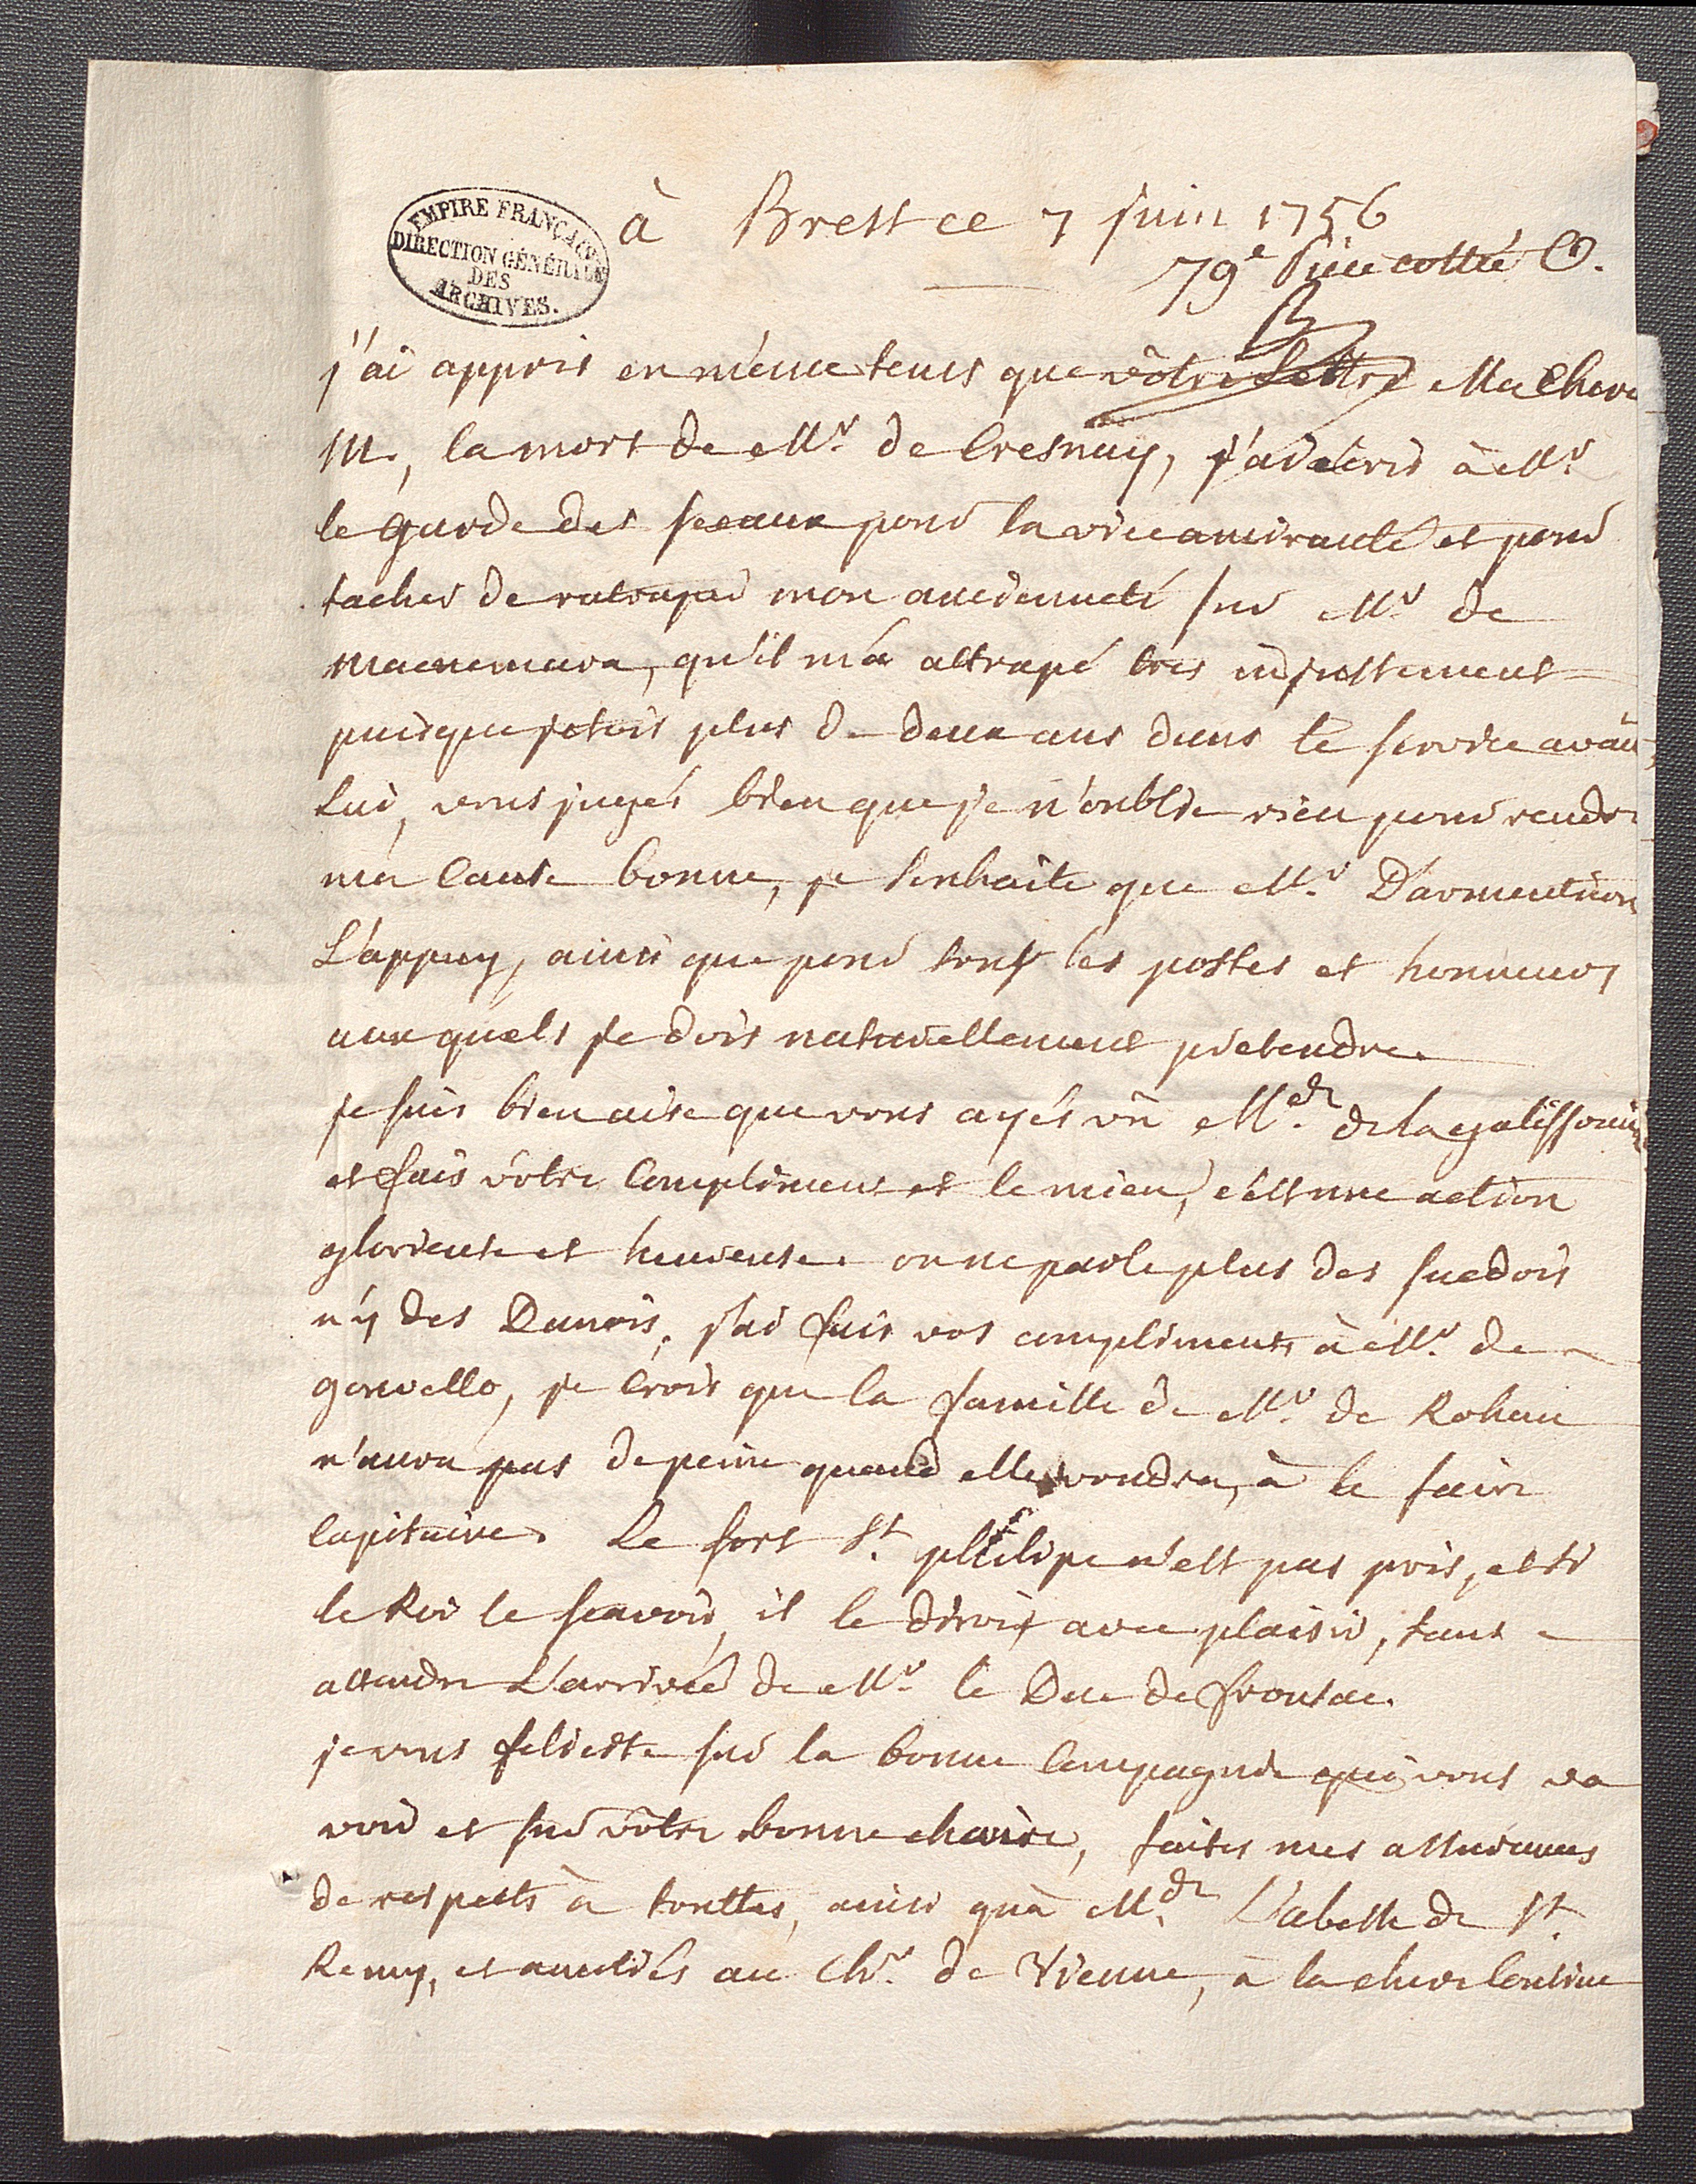 EMPIRE FRANÇAIS
DIRECTION GÉNÉRALE
DES
ARCHIVES.
à Brest ce 7 juin 1756
79e Piece cottée O.
j'ai appris en même tems que vôtre Lettre Ma Chere
M., la mort de Mr. de Cresnay, j'ai écris à Mr.
le garde des sceaux pour la vice amirauté et pour
tacher de ratraper mon ancienneté sur Mr. de
macnemara, qu'il m'a attrapé tres injustement
puisque jetois plus de deux ans dans le service avan
lui, vous jugés bien que je n'oublie rien pour rendre
ma cause bonne, je souhaite que Mr. D'armention
L'appuy, ainsi que pour tous les postes et honneurs
auxquels je dois naturellement pretendre.
je suis bien aise que vous ayés vû Mde. de la galissonni
et fais vôtre compliment et le mien, c'est une action
glorieuse et heureuse. on ne parle plus des suedois
n'y des Danois, j'ai fais vos compliments à Mr. de
gouvello, je crois que la famille de Mr. de Rohan
n'aura pas de peine quand elle voudra, à le faire
capitaine. Le fort St. philipe n'est pas pris, et si
le Roi le scavoit, il le diroit avec plaisir, sans
attendre L'arrivée de Mr. le Duc de fronsac.
je vous felicite sur la bonne compagnie qui vous va
voir et sur vôtre bonne chaire, faites mes assurances
de respects à touttes, ainsi qu'à Mde. L'abesse de St.
Remy, et amitiés au chr. de Vienne, à la chere Cousine